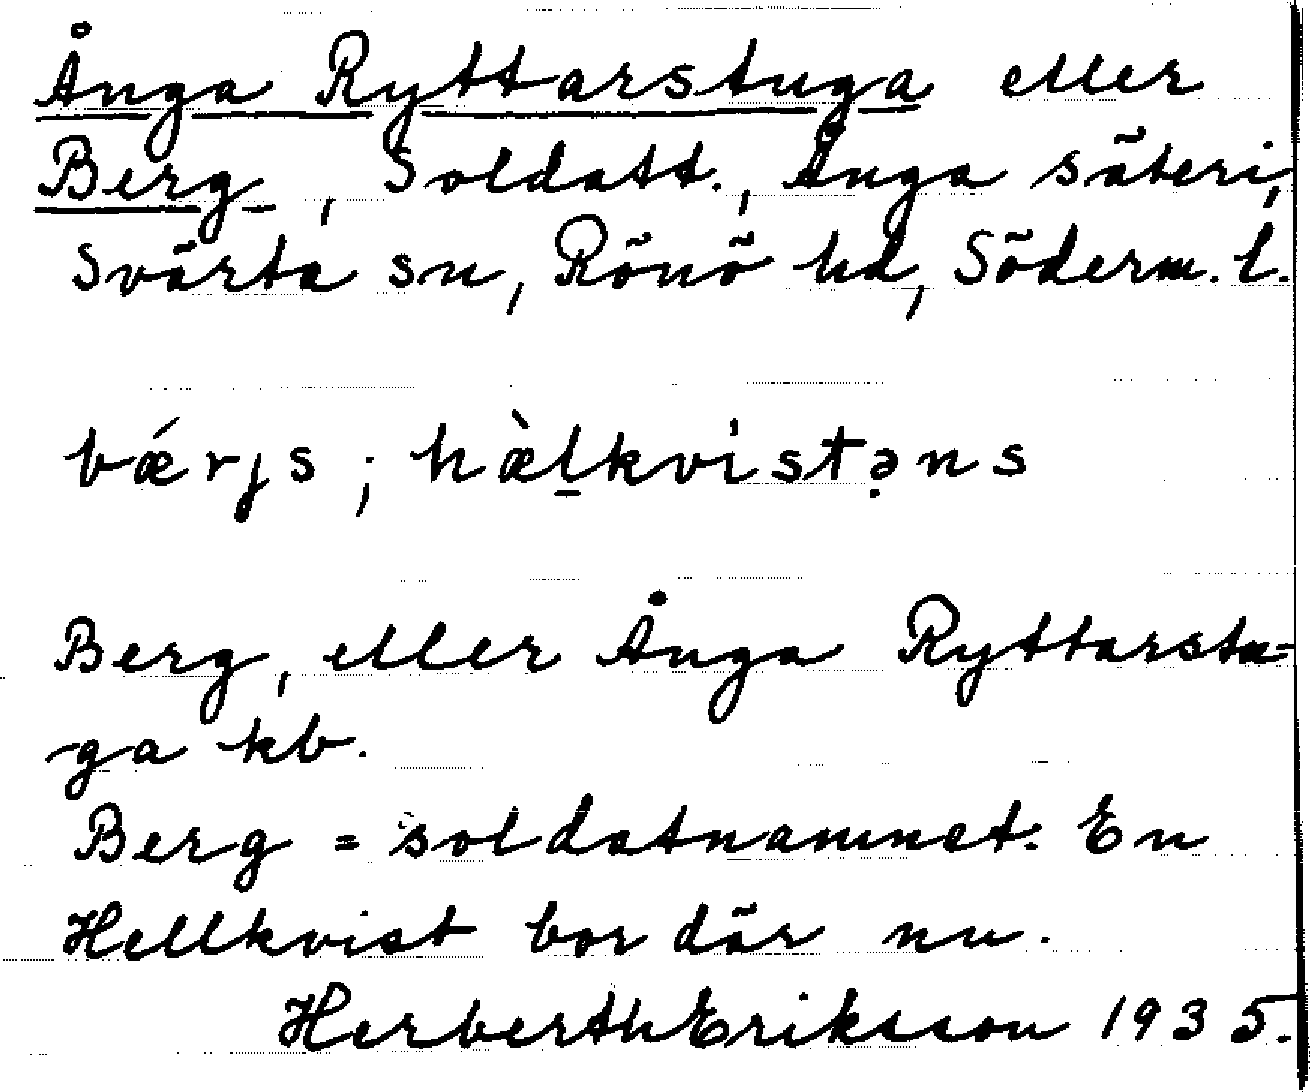 Ånga Ryttarstuga eller
Berg, Soldatt., Ånga säteri,
Svärta sn, Rönö hd, Söderm. l.
bǽrjs; hæ̀l̠kvi̍stə̣ns
Berg, eller Ånga Ryttarstu=
ga kb.
Berg = soldatnamnet. En
Hellkvist bor där nu.
Herberth Eriksson 1935.